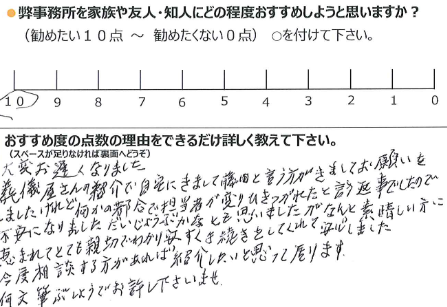 ●弊事務所を家族や友人・知人にどの程度おすすめしようと思いますか？
（勧めたい１０点 ～ 勧めたくない０点） ○を付けて下さい。
10 9 8 7 6 5 4 3 2 1 0
おすすめ度の点数の理由をできるだけ詳しく教えて下さい。
（スペースが足りなければ裏面へどうぞ）
大変お遅くなりました
葬儀屋さんの紹介で自宅にきまして藤田と言う方がきましてお願いを
しましたけれど何かの都合で担当者が変りひきつがれたと言う返事でしたので
不安になりましただいじょうぶかなとも思いましたがなんと素晴しい方に
恵まれてとても親切でわかり安すく手続きをしてくれて安心しました
今度相談する方があれば紹介したいと思って居ります
何文筆ぶしょうでお許し下さいませ